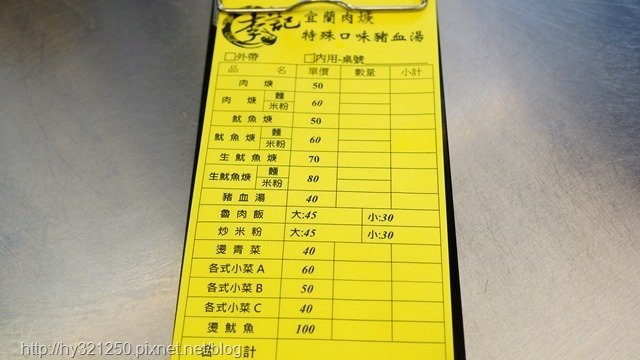 李記 宜蘭肉焿
特殊口味豬血湯
□外帶 □內用-桌號
品名 單價 數量 小計
肉焿 50
肉焿 麵 米粉 60
魷魚焿 50
魷魚焿 麵 米粉 60
生魷魚焿 70
生魷魚焿 麵 米粉 80
豬血湯 40
魯肉飯 大:45 小:30
炒米粉 大:45 小:30
燙青菜 40
各式小菜A 60
各式小菜B 50
各式小菜C 40
燙魷魚 100
計
http://hy321250.pixnet.net/blog